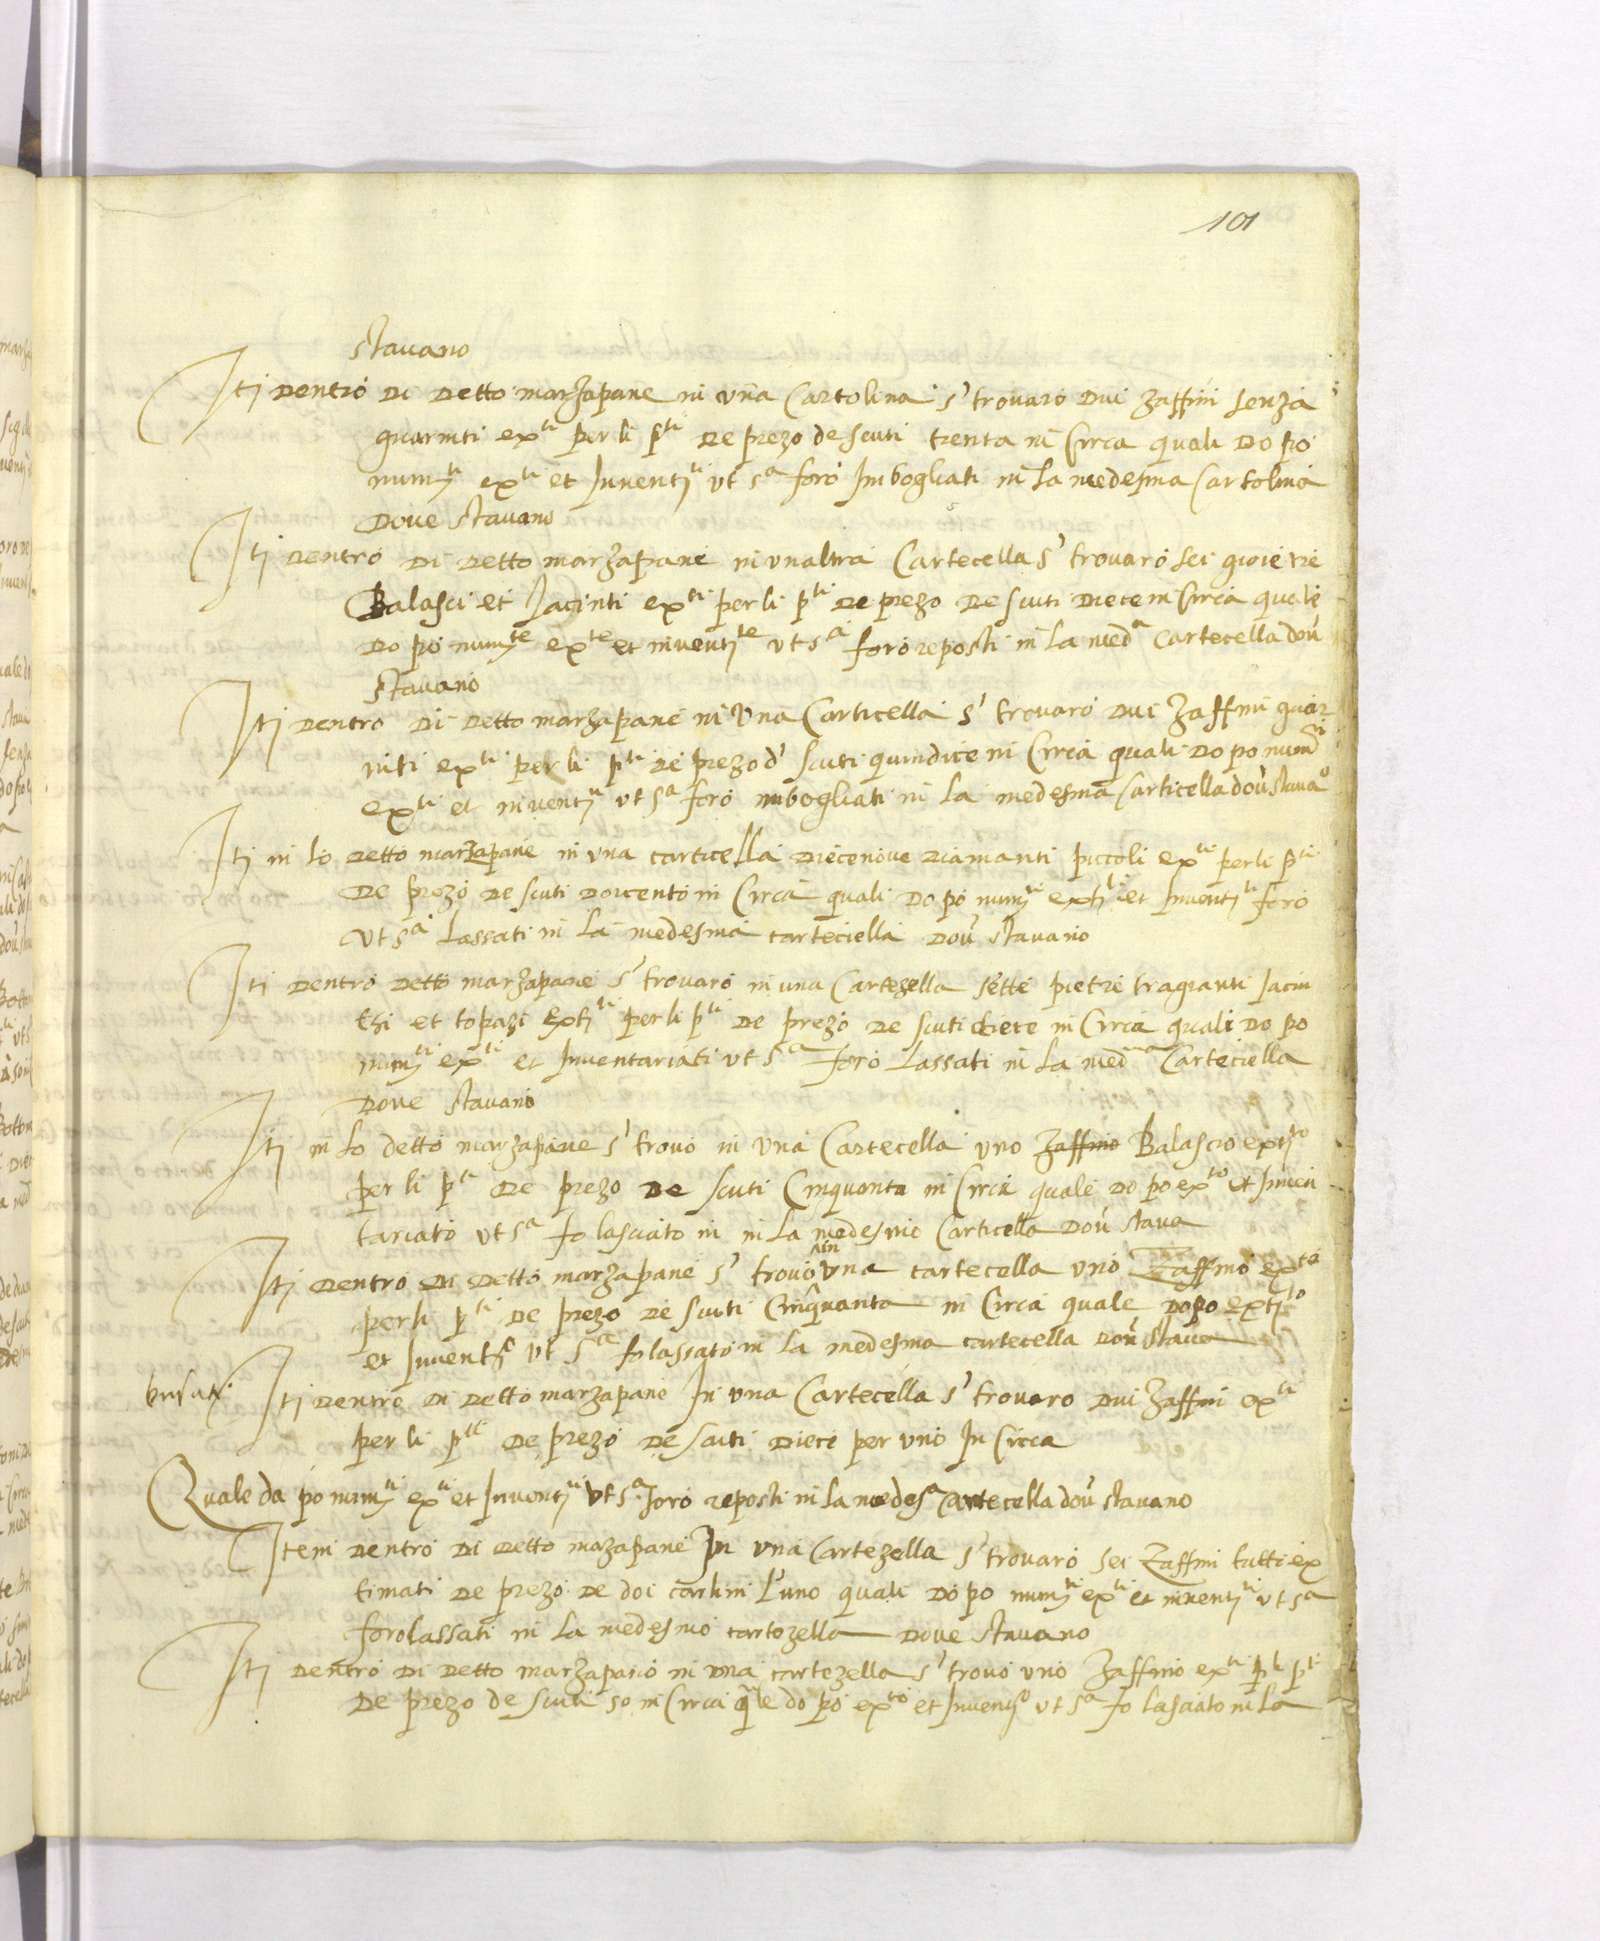 101
stavano
Iti dentro di detto marzapane in una Cartolina s' trovaro dui zaffini senza
guarniti exti per li pti de prezo de scuti trenta in Circa quali do po
numti exti et Inventti ut sa foro Imbogliati in la medesma Cartolina
Dove stavano
Iti dentro di detto marzapane in unaltra Cartecella s' trovaro sei gioie tre
Balasci et Jacinti exti per li pti de prezo de scuti diece in Circa quale
do po numte exte et inventte ut sa foro reposti in la meda cartecella dou
stavano
Iti dentro di detto marzapane in Una Carticella s' trovaro dui Zaffini guar
niti exti per li pti de prezo d' scuti quindice in Circa quali do po numti
exti et inventti ut sa foro imbogliati in la medesma Carticella dou' stavao
Iti in lo detto marzapane in una carticella diecenove diamanti piccoli exti per li pti
de prezo de scuti doicento in Circa quali do po numti exti et Inventti foro
ut sa lassati in la medesma carteciella dou' stavano
Iti dentro detto marzapane s' trovaro in una Cartezella sette pietre fragianti Jacin
thi et topazi exti per li pti de prezo de scuti diece in Circa quali do po
numti exti et Inventariati ut sa foro lassati in la medma Carteciella
dove stavano
Iti in lo detto marzapane s' trovo in una Cartecella uno zaffino Balascio exto
per li pti de prezo de scuti Cinquanta in Circa quale do po exto et Inven
tariato ut sa fo lasciato in in la medesmo Carticella dou' stava
Iti dentro di detto marzapane s' trovo in una cartecella uno Zaffino exto
per li pti de prezo de scuti Cinquanta in Circa quale dopo exto
et Inventto ut sa fo lassato in la medesma cartecella dou' stava
Iti dentro di detto marzapane In una Cartecella s' trovaro dui Zaffini exti
per li pti de prezo de scuti diece per uno In Circa
Quale da po numti exti et Inventti ut sa foro reposti in la medesa Cartecella dou' stavano
Item dentro di detto mazapane In una Cartezella s' trovaro sei Zaffini tutti ex
timati de prezo de doi carlini l'uno quali do po numti exti et inventti ut sa
foro lassati in la medesmo cartozella dove stavano
Iti dentro di detto marzapano in una cartezella s' trovo uno Zaffino exti pli pti
de prezo de scuti 50 in Circa qle do po exto et Invento ut sa fo lasciato in la